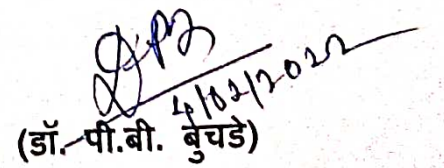 4/02/2022
(डॉ. पी.बी. बुचडे)